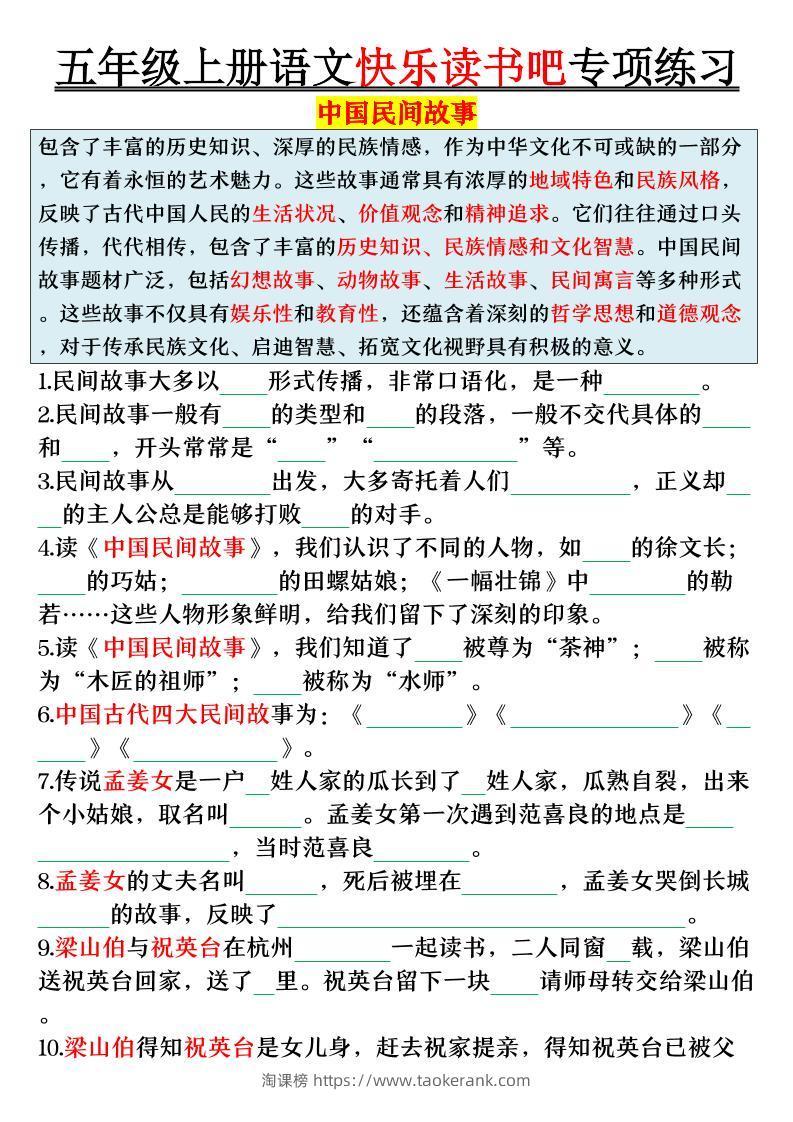 五年级上册语文快乐读书吧专项练习
中国民间故事
包含了丰富的历史知识、深厚的民族情感，作为中华文化不可或缺的一部分
，它有着永恒的艺术魅力。这些故事通常具有浓厚的地域特色和民族风格，
反映了古代中国人民的生活状况、价值观念和精神追求。它们往往通过口头
传播，代代相传，包含了丰富的历史知识、民族情感和文化智慧。中国民间
故事题材广泛，包括幻想故事、动物故事、生活故事、民间寓言等多种形式
。这些故事不仅具有娱乐性和教育性，还蕴含着深刻的哲学思想和道德观念
，对于传承民族文化、启迪智慧、拓宽文化视野具有积极的意义。
1.民间故事大多以____形式传播，非常口语化，是一种________。
2.民间故事一般有____的类型和____的段落，一般不交代具体的____
和____，开头常常是“____”“____________”等。
3.民间故事从________出发，大多寄托着人们__________，正义却__
__的主人公总是能够打败____的对手。
4.读《中国民间故事》，我们认识了不同的人物，如____的徐文长；
____的巧姑；________的田螺姑娘；《一幅壮锦》中________的勒
若……这些人物形象鲜明，给我们留下了深刻的印象。
5.读《中国民间故事》，我们知道了____被尊为“茶神”；____被称
为“木匠的祖师”；____被称为“水师”。
6.中国古代四大民间故事为：《________》《______________》《__
____》《____________》。
7.传说孟姜女是一户__姓人家的瓜长到了__姓人家，瓜熟自裂，出来
个小姑娘，取名叫______。孟姜女第一次遇到范喜良的地点是____
________________，当时范喜良________。
8.孟姜女的丈夫名叫______，死后被埋在________，孟姜女哭倒长城
______的故事，反映了__________________________________。
9.梁山伯与祝英台在杭州________一起读书，二人同窗__载，梁山伯
送祝英台回家，送了__里。祝英台留下一块____请师母转交给梁山伯
。
10.梁山伯得知祝英台是女儿身，赶去祝家提亲，得知祝英台已被父
淘课榜 https://www.taokerank.com